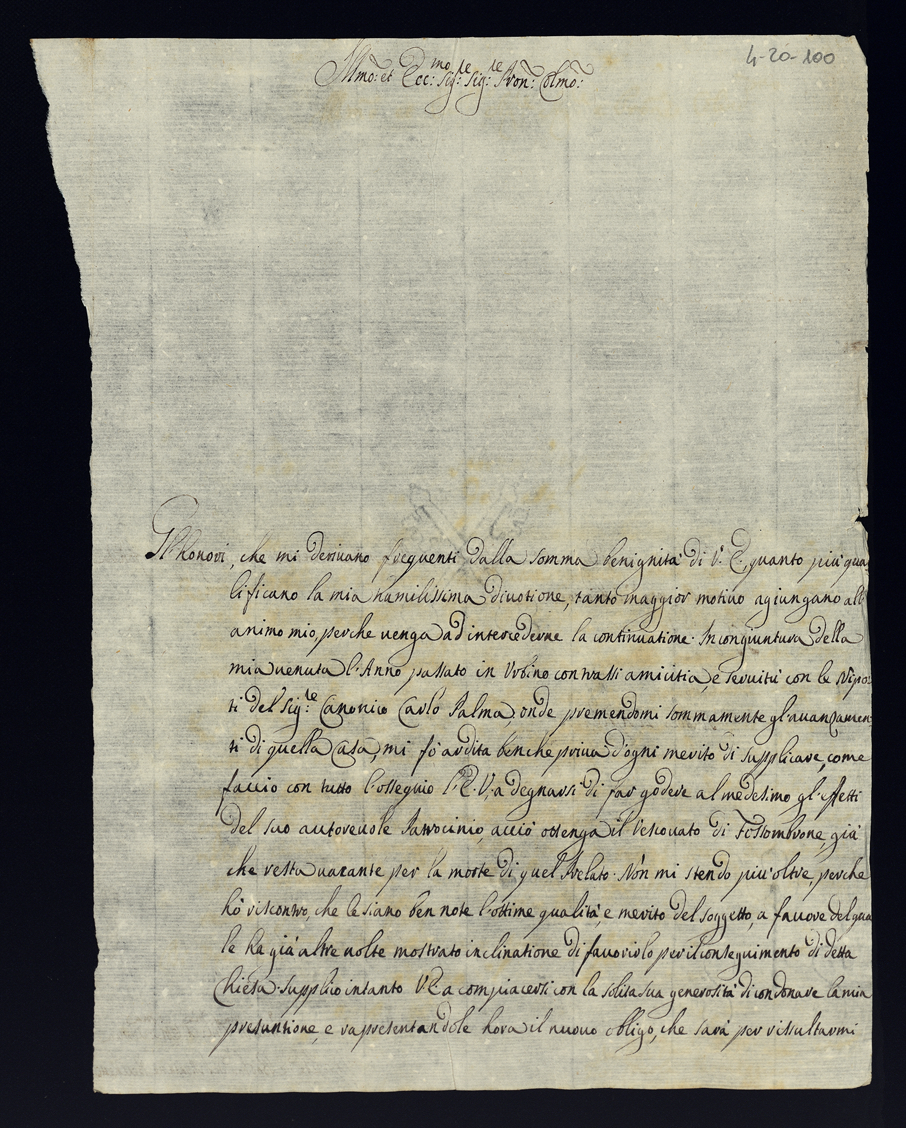 4-20-100
Illmo: et Ecc:mo Sig:re Sig:re Pron: Colmo:
Gl'honori, che mi deriuano frequenti dalla somma benignità di V. E., quanto più qua
lificano la mia humilissima diuotione, tanto maggior motiuo agiungano all'
animo mio, perche uenga ad intercederne la continuatione. In congiuntura della
mia uenuta l'Anno passato in Vrbino contrassi amicitia, e seruitù con le Nipo:
ti del Sig:re Canonico Carlo Palma, onde premendomi sommamente gl'auanzamen
ti di quella Casa, mi fò ardita benche priua d'ogni merito di supplicare, come
faccio con tutto l'ossequio l'E. V., a degnarsi di far godere al medesimo gl'effetti
del suo autoreuole Patrocinio, acciò ottenga il Vescouato di Fossombrone, già
che resta uacante per la morte di quel Prelato. Non mi stendo più oltre, perche
hò riscontro, che le siano ben note l'ottime qualità, e merito del soggetto, a fauore del qua
le ha già altre uolte mostrato inclinatione di fauorirlo per il conseguimento di detta
Chiesa. Supplico intanto V. E. a compiacersi con la solita sua generosità di condonare la mia
presuntione, e rapresentandole hora il nuouo obligo, che sarà per rissultarmi